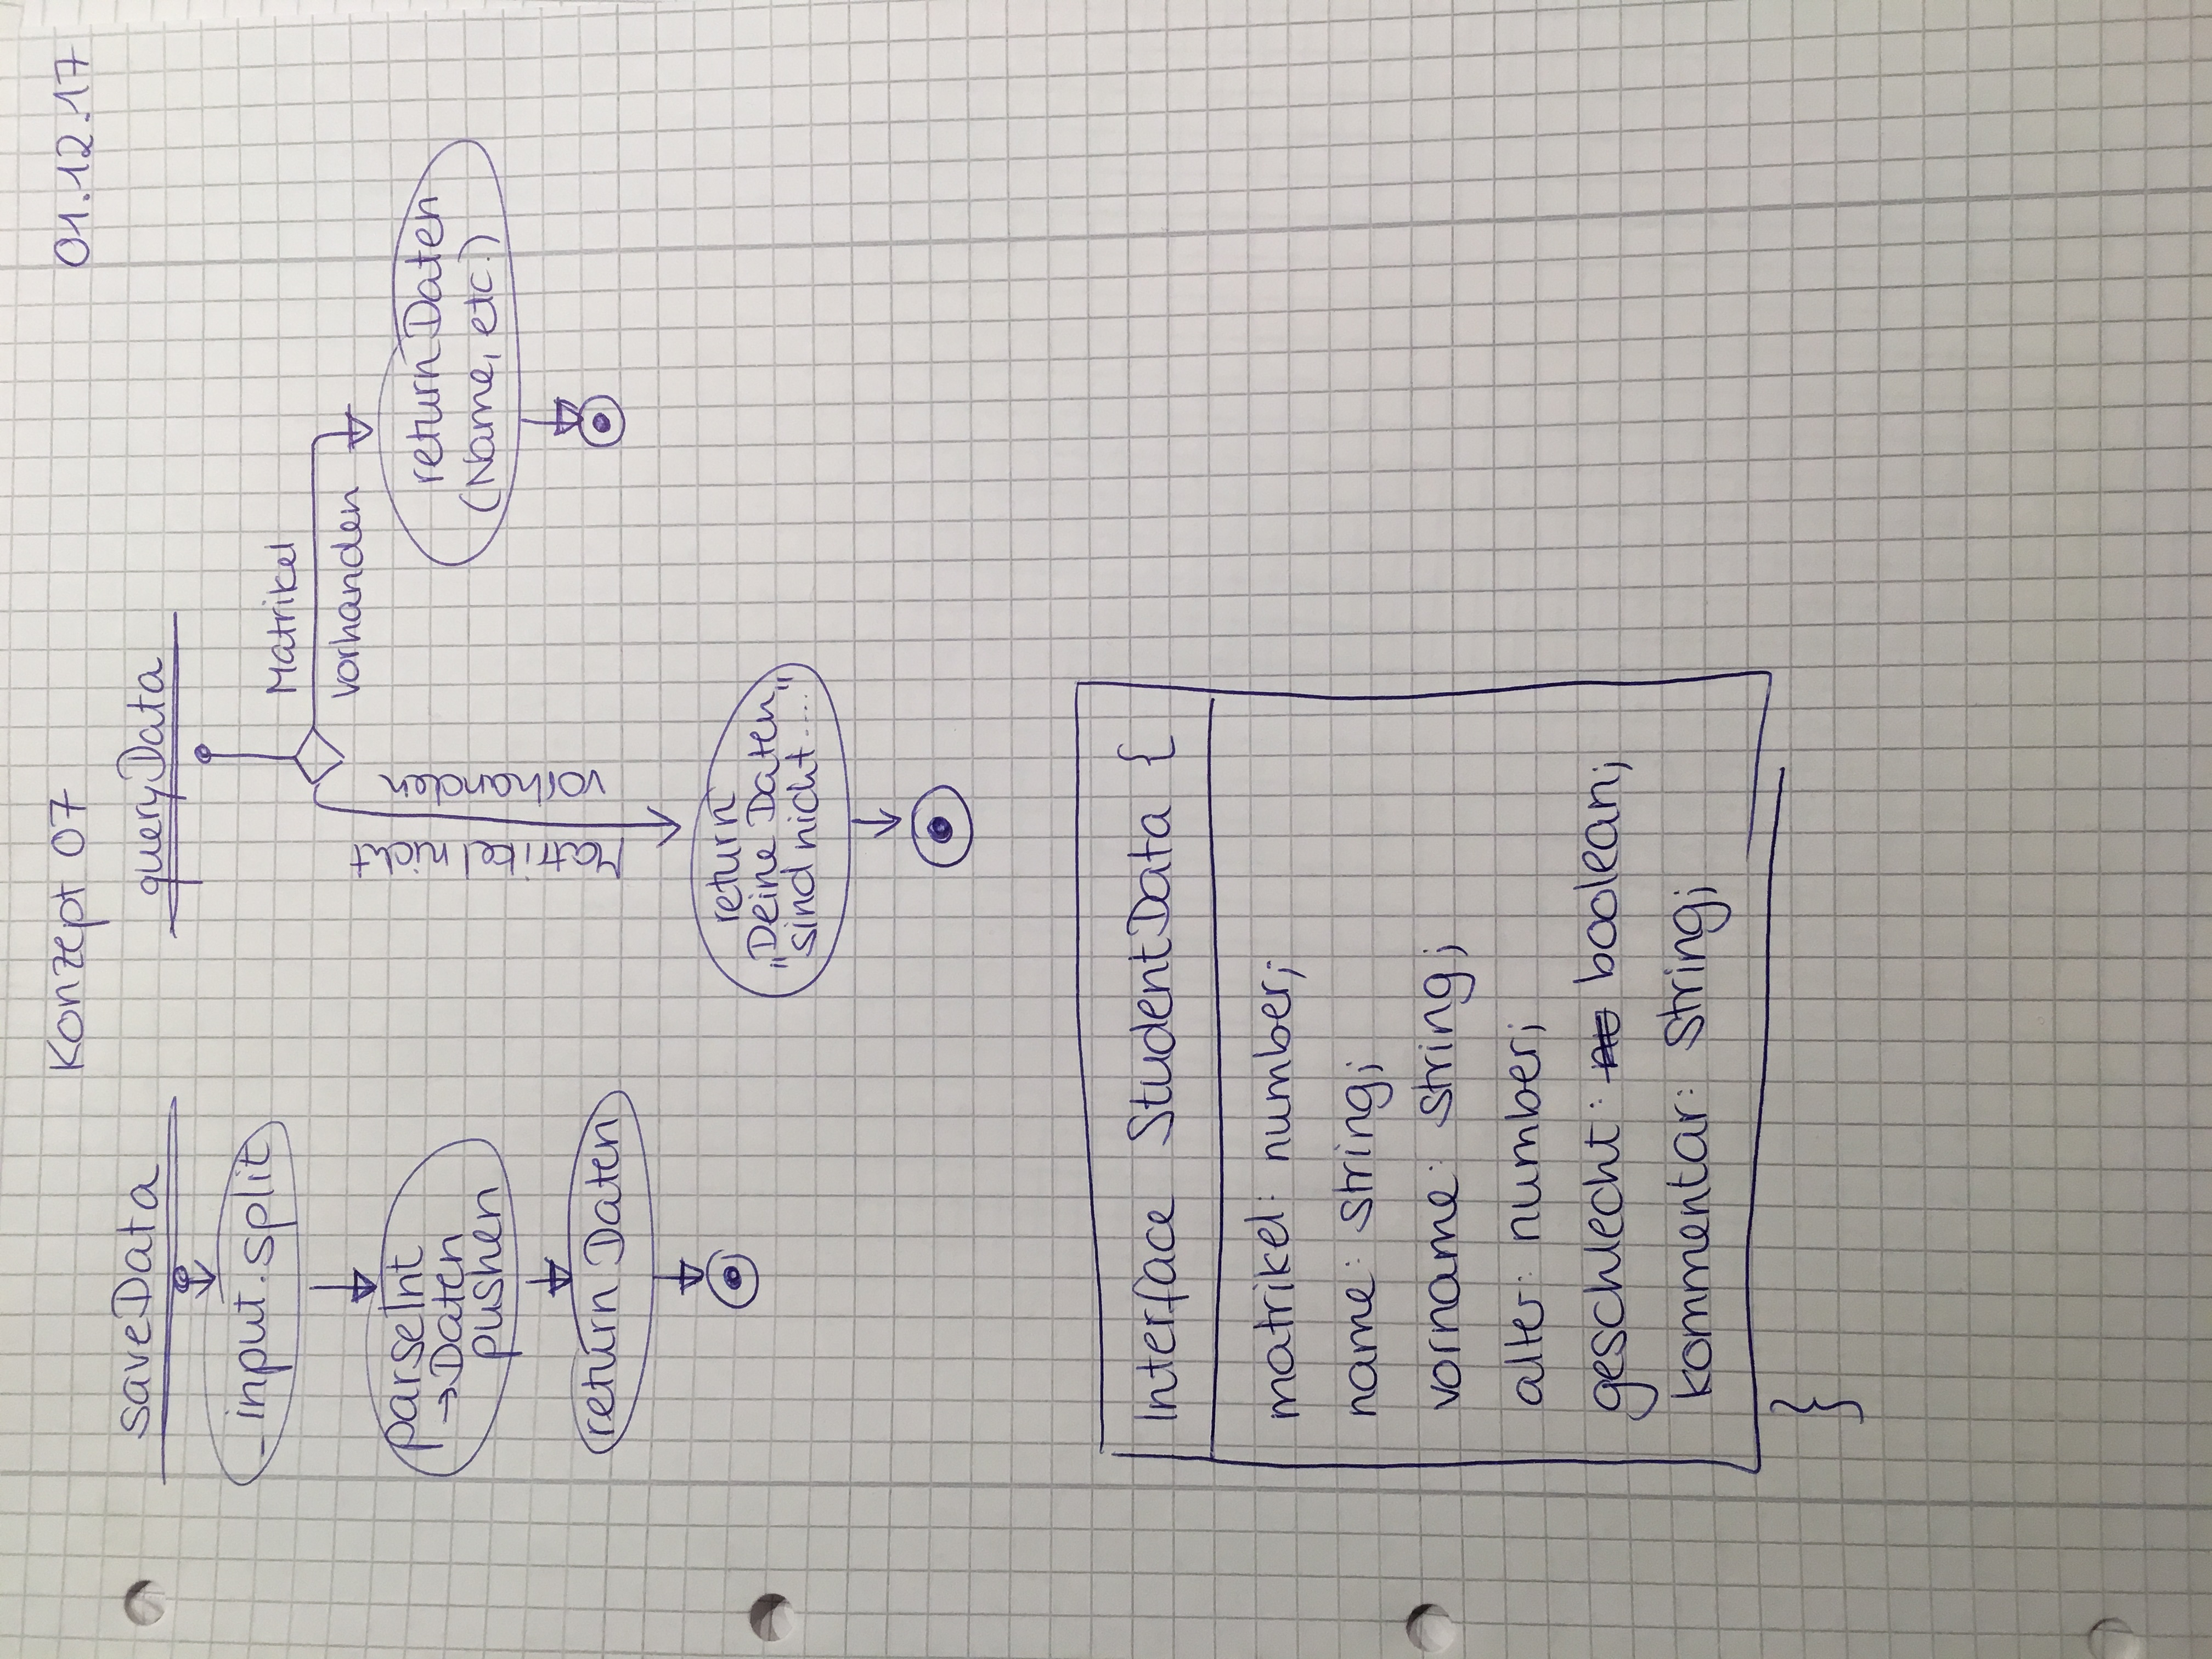 Konzept 07
01.12.17
saveData
_input.split
parseInt
→Daten
pushen
return Daten
queryData
Matrikel
vorhanden
return Daten
(Name, etc.)
Matrikel nicht
vorhanden
return
„Deine Daten
sind nicht...."
Interface StudentData {
matrikel: number;
name: string;
vorname: string;
alter: number;
geschlecht: boolean;
kommentar: string;
}